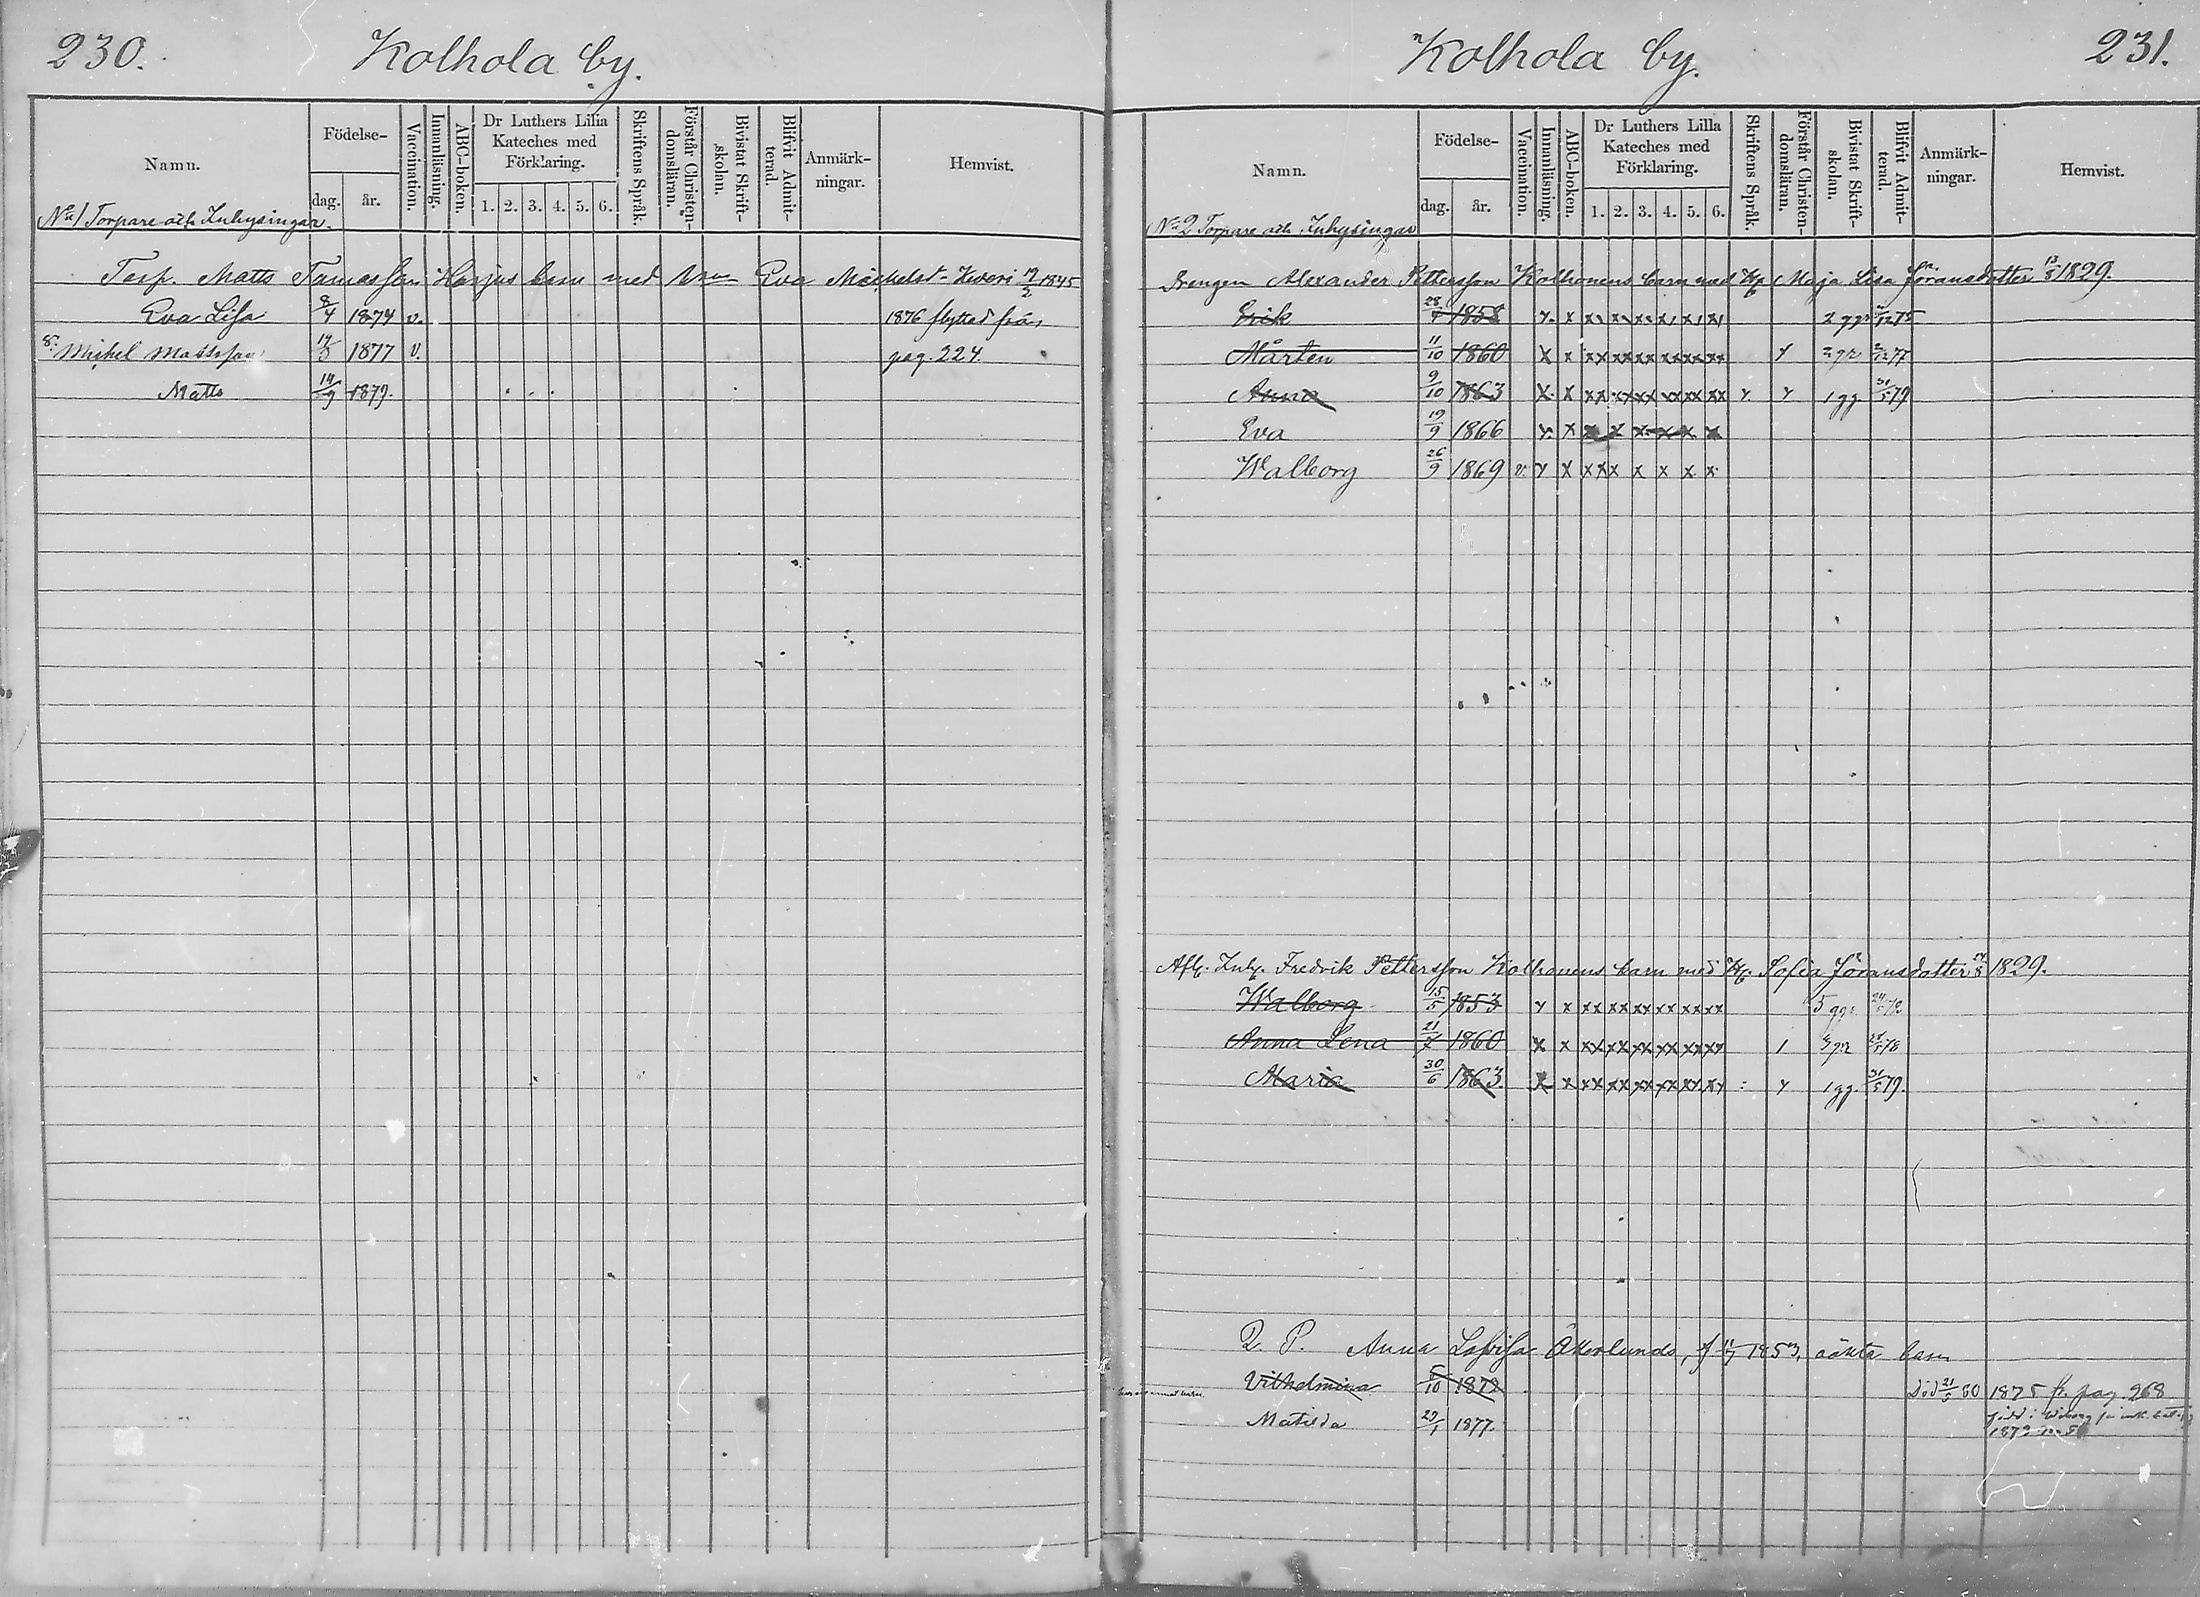 230.
Kolhola by.
Namn.
Födelse-
dag.
år.
Vaccination.
Innanläsning.
ABC-boken.
Dr Luthers Lilla
Kateches med
Förklaring.
1. 2. 3. 4. 5. 6.
Skriftens Språk.
Förstår Christen-
domsläran.
Bivistat Skrift-
skolan.
Blifvit Admit-
terad.
Anmärk-
ningar.
Hemvist.
No 1 Torpare och Inhysingar.
Torp. Matts Tamasson Harjus barn med Eva Mickelsd. 19/2 1845
Eva Lisa 8/4 1874 v. 1876 flyttad från
Mickel Mattsson 1877 v. pag. 224.
Matts 14/9 1879.
Kolhola by.
231.
Namn.
Födelse-
dag.
år.
Vaccination.
Innanläsning.
ABC-boken.
Dr Luthers Lilla
Kateches med
Förklaring.
1. 2. 3. 4. 5. 6.
Skriftens Språk.
Förstår Christen-
domsläran.
Bivistat Skrift-
skolan.
Blifvit Admit-
terad.
Anmärk-
ningar.
Hemvist.
No 2 Torpare och Inhysingar
Drengen Alexander Pettersson Kolhonens barn med Maja Lisa Göransdotter 1829.
Erik 1858 x x x x x x x x 2 ggr 75
Mårten 11/10 1860 x x xx xx xx xx xx xx x 77
Anna 9/10 1863 x x xx xx xx xx xx xx x x 1 gg 31/5 79
Eva 19/9 1866 x x x x x x x x
Walborg 26/9 1869 v. x x xx x x x x x
Afl. Inh. Fredrik Pettersson Kolhonens barn med Sofia Göransdotter 1829.
Walborg 15/5 1853 x x xx xx xx xx xx xx 5 ggr
Anna Lena 1860 x x xx xx xx xx xx xx 78
Maria 30/6 1863 x x xx xx xx xx xx xx x 1 gg. 31/5 79.
Q. P. Anna Lovisa Åkerlunds, 1853, oäkta barn
Vilhelmina 1872 Död 80 1875 fr. pag. 268
Matilda 1877.